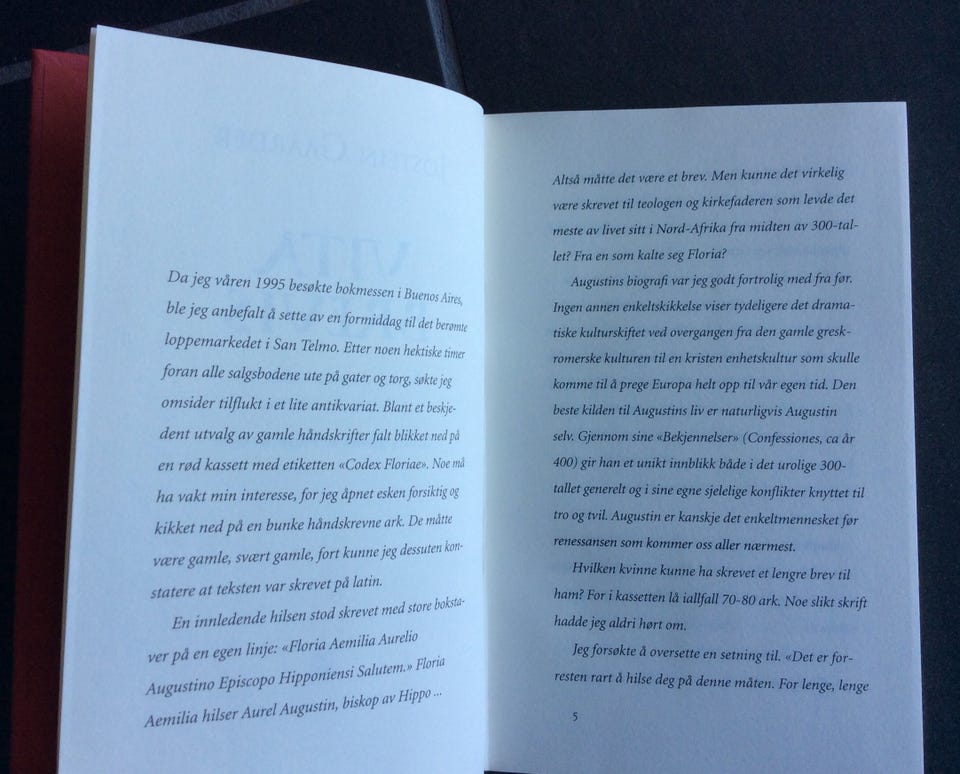 Da jeg våren 1995 besøkte bokmessen i Buenos Aires,
ble jeg anbefalt å sette av en formiddag til det berømte
loppemarkedet i San Telmo. Etter noen hektiske timer
foran alle salgsbodene ute på gater og torg, søkte jeg
omsider tilflukt i et lite antikvariat. Blant et beskje-
dent utvalg av gamle håndskrifter falt blikket ned på
en rød kassett med etiketten «Codex Floriae». Noe må
ha vakt min interesse, for jeg åpnet esken forsiktig og
kikket ned på en bunke håndskrevne ark. De måtte
være gamle, svært gamle, fort kunne jeg dessuten kon-
statere at teksten var skrevet på latin.
En innledende hilsen stod skrevet med store boksta-
ver på en egen linje: «Floria Aemilia Aurelio
Augustino Episcopo Hipponiensi Salutem.» Floria
Aemilia hilser Aurel Augustin, biskop av Hippo ...
Altså måtte det være et brev. Men kunne det virkelig
være skrevet til teologen og kirkefaderen som levde det
meste av livet sitt i Nord-Afrika fra midten av 300-tal-
let? Fra en som kalte seg Floria?
Augustins biografi var jeg godt fortrolig med fra før.
Ingen annen enkeltskikkelse viser tydeligere det drama-
tiske kulturskiftet ved overgangen fra den gamle gresk-
romerske kulturen til en kristen enhetskultur som skulle
komme til å prege Europa helt opp til vår egen tid. Den
beste kilden til Augustins liv er naturligvis Augustin
selv. Gjennom sine «Bekjennelser» (Confessiones, ca år
400) gir han et unikt innblikk både i det urolige 300-
tallet generelt og i sine egne sjelelige konflikter knyttet til
tro og tvil. Augustin er kanskje det enkeltmennesket før
renessansen som kommer oss aller nærmest.
Hvilken kvinne kunne ha skrevet et lengre brev til
ham? For i kassetten lå iallfall 70-80 ark. Noe slikt skrift
hadde jeg aldri hørt om.
Jeg forsøkte å oversette en setning til. «Det er for-
resten rart å hilse deg på denne måten. For lenge, lenge
5